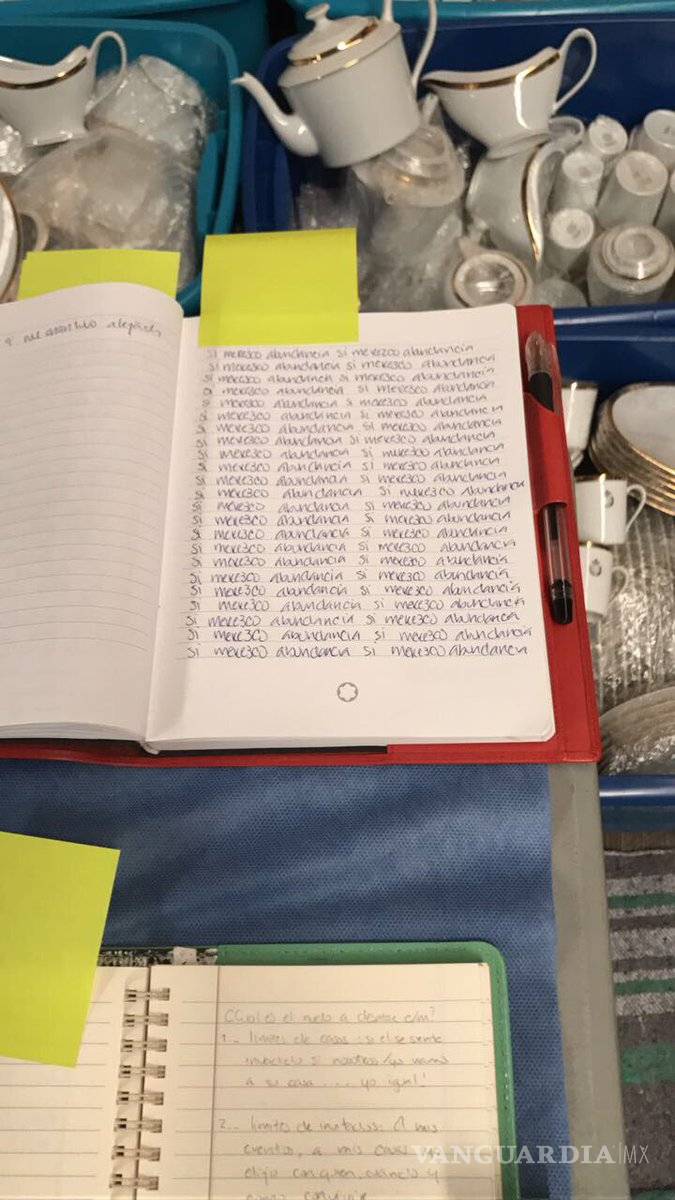 y me asombro alejarás
si merezco abundancia si merezco abundancia
si merezco abundancia si merezco abundancia
si merezco abundancia si merezco abundancia
si merezco abundancia si merezco abundancia
si merezco abundancia si merezco abundancia
si merezco abundancia si merezco abundancia
si merezco abundancia si merezco abundancia
si merezco abundancia si merezco abundancia
si merezco abundancia si merezco abundancia
si merezco abundancia si merezco abundancia
si merezco abundancia si merezco abundancia
si merezco abundancia si merezco abundancia
si merezco abundancia si merezco abundancia
si merezco abundancia si merezco abundancia
si merezco abundancia si merezco abundancia
si merezco abundancia si merezco abundancia
si merezco abundancia si merezco abundancia
si merezco abundancia si merezco abundancia
si merezco abundancia si merezco abundancia
si merezco abundancia si merezco abundancia
si merezco abundancia si merezco abundancia
si merezco abundancia si merezco abundancia
si merezco abundancia si merezco abundancia
¿Cuál es el miedo a
1.- limites de casas: si el se siente
si nosotros vamos
a su casa .... yo igual!
2.- limites de invitados: A mis
eventos, a mis casas
elijo con quien, cuando y
convivir
VANGUARDIA|MX